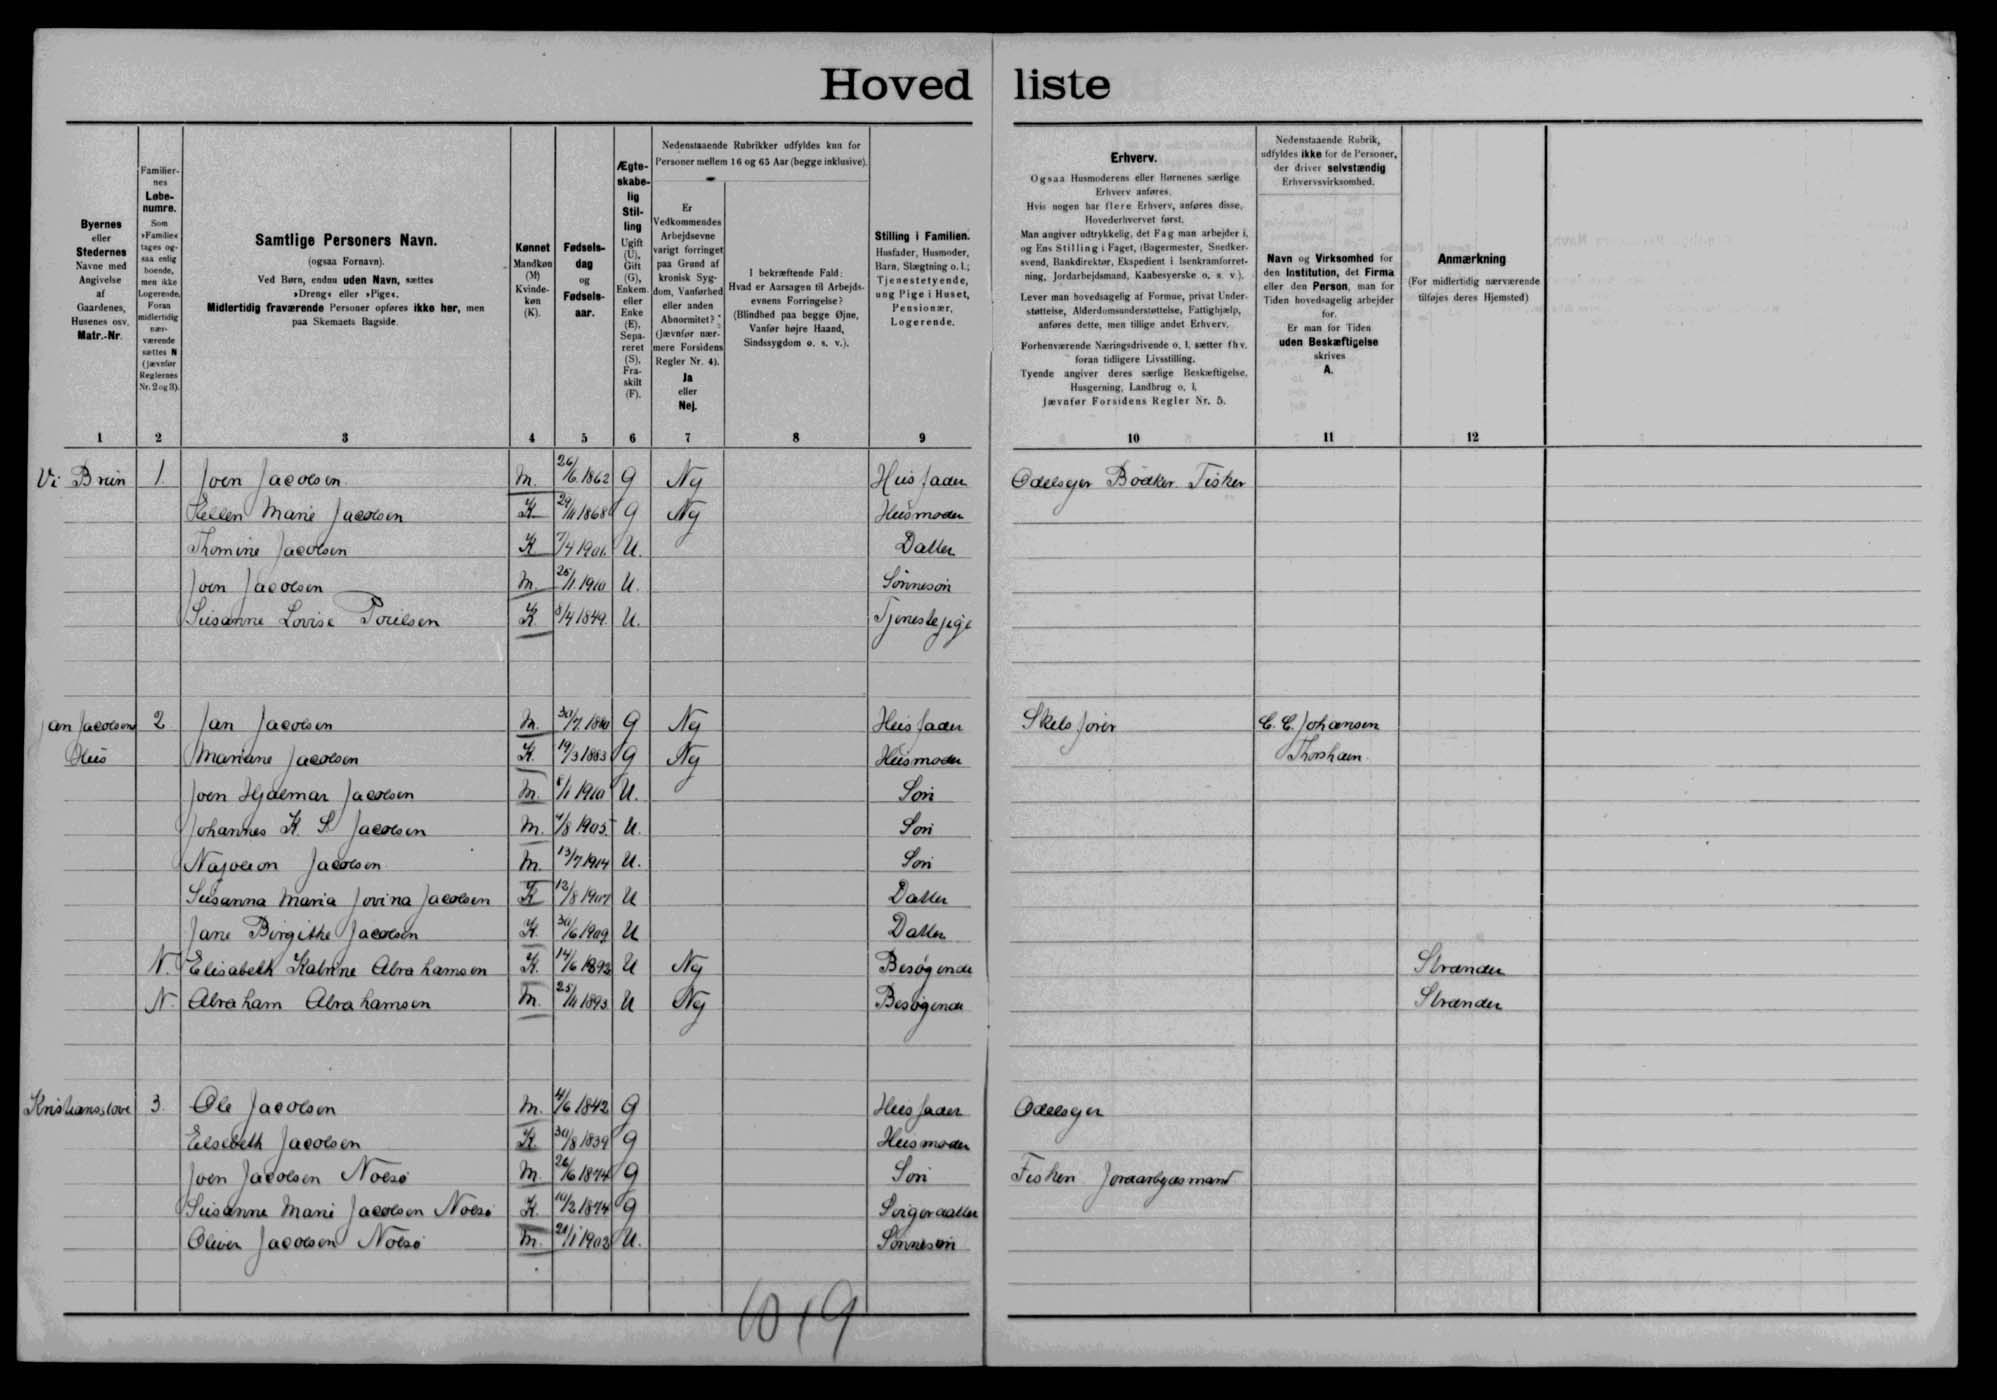 Hoved liste
Byernes
eller
Stedernes
Navne med
Angivelse
af
Gaardenes,
Husenes osv.
Matr.-Nr.
Familier-
nes
Løbe-
numre.
Som
»Familie«
tages og-
saa enlig
boende,
men ikke
Logerende.
Foran
midlertidig
nær-
værende
sættes N
(jævnfør
Reglernes
Nr. 2 og 3).
Samtlige Personers Navn.
(ogsaa Fornavn).
Ved Børn, endnu uden Navn, sættes
»Dreng« eller »Pige«.
Midlertidig fraværende Personer opføres ikke her, men
paa Skemaets Bagside.
Kønnet
Mandkøn
(M)
Kvinde-
køn
(K).
Fødsels-
dag
og
Fødsels-
aar.
Ægte-
skabe-
lig
Stil-
ling
Ugift
(U),
Gift
(G),
Enkem.
eller
Enke
(E),
Sepa-
reret
(S),
Fra-
skilt
(F).
Nedenstaaende Rubrikker udfyldes kun for
Personer mellem 16 og 65 Aar (begge inklusive).
Er
Vedkommendes
Arbejdsevne
varigt forringet
paa Grund af
kronisk Syg-
dom, Vanførhed
eller anden
Abnormitet?
(Jævnfør nær-
mere Forsidens
Regler Nr. 4).
Ja
eller
Nej.
I bekræftende Fald:
Hvad er Aarsagen til Arbejds-
evnens Forringelse?
(Blindhed paa begge Øjne,
Vanfør højre Haand,
Sindssygdom o. s. v.).
Stilling i Familien.
Husfader, Husmoder,
Barn, Slægtning o. l.;
Tjenestetyende,
ung Pige i Huset,
Pensionær,
Logerende.
Erhverv.
Ogsaa Husmoderens eller Børnenes særlige
Erhverv anføres.
Hvis nogen har flere Erhverv, anføres disse,
Hovederhvervet først.
Man angiver udtrykkelig, det Fag man arbejder i,
og Ens Stilling i Faget, (Bagermester, Snedker-
svend, Bankdirektør, Ekspedient i Isenkramforret-
ning, Jordarbejdsmand, Kaabesyerske o. s. v.).
Lever man hovedsagelig af Formue, privat Under-
støttelse, Alderdomsunderstøttelse, Fattighjælp,
anføres dette, men tillige andet Erhverv.
Forhenværende Næringsdrivende o. l. sætter fhv.
foran tidligere Livsstilling.
Tyende angiver deres særlige Beskæftigelse,
Husgerning, Landbrug o. l.
Jævnfør Forsidens Regler Nr. 5.
Nedenstaaende Rubrik,
udfyldes ikke for de Personer,
der driver selvstændig
Erhvervsvirksomhed.
Navn og Virksomhed for
den Institution, det Firma
eller den Person, man for
Tiden hovedsagelig arbejder
for.
Er man for Tiden
uden Beskæftigelse
skrives
A.
Anmærkning
(For midlertidig nærværende
tilføjes deres Hjemsted)
1 2 3 4 5 6 7 8 9 10 11 12
Vi Brun 1. Joen Jacobsen M. 26/6 1862 G Nej Husfader Odelsejer Bödker Fisker
Hellen Marie Jacobsen K 29/11 1868 G Nej Husmoder
Thomine Jacobsen K 7/4 1901. U. Datter
Joen Jacobsen M. 25/1 1910 U. Sönnesön
Susanne Lovise Poulsen K 8/4 1849. U. Tjenestepige
Jan Jacobsens 2 Jan Jacobsen M. 30/7 1880 G Nej Husfader Skibsförer C. C. Johansen
Hus Mariane Jacobsen K. 19/3 1883 G Nej Husmoder Thorshavn
Joen Hjalmar Jacobsen M. 8/1 1910 U. Sön
Johannes K. S. Jacobsen M. 4/8 1905. U. Sön
Napoleon Jacobsen M. 13/7 1914 U. Sön
Susanna Maria Jovina Jacobsen K 12/8 1907 U Datter
Jane Birgithe Jacobsen K. 30/6 1909 U Datter
N. Elisabeth Katrine Abrahamsen K. 14/6 1892 U Nej Besøgende Strænder
N. Abraham Abrahamsen M. 25/11 1893 U Nej Besøgende Strænder
Kristianstove 3. Ole Jacobsen M. 4/6 1842 G Husfader Odelsejer
Elsebeth Jacobsen K. 30/8 1839 G Husmoder
Joen Jacobsen Nolsö M. 26/6 1874 G Sön Fisker Jordarbejdsmand
Susanne Marie Jacobsen Nolsö K. 10/2 1874 G Svigerdatter
Oliver Jacobsen Nolsö M. 21/1 1903 U. Sönnesön
10 + 9